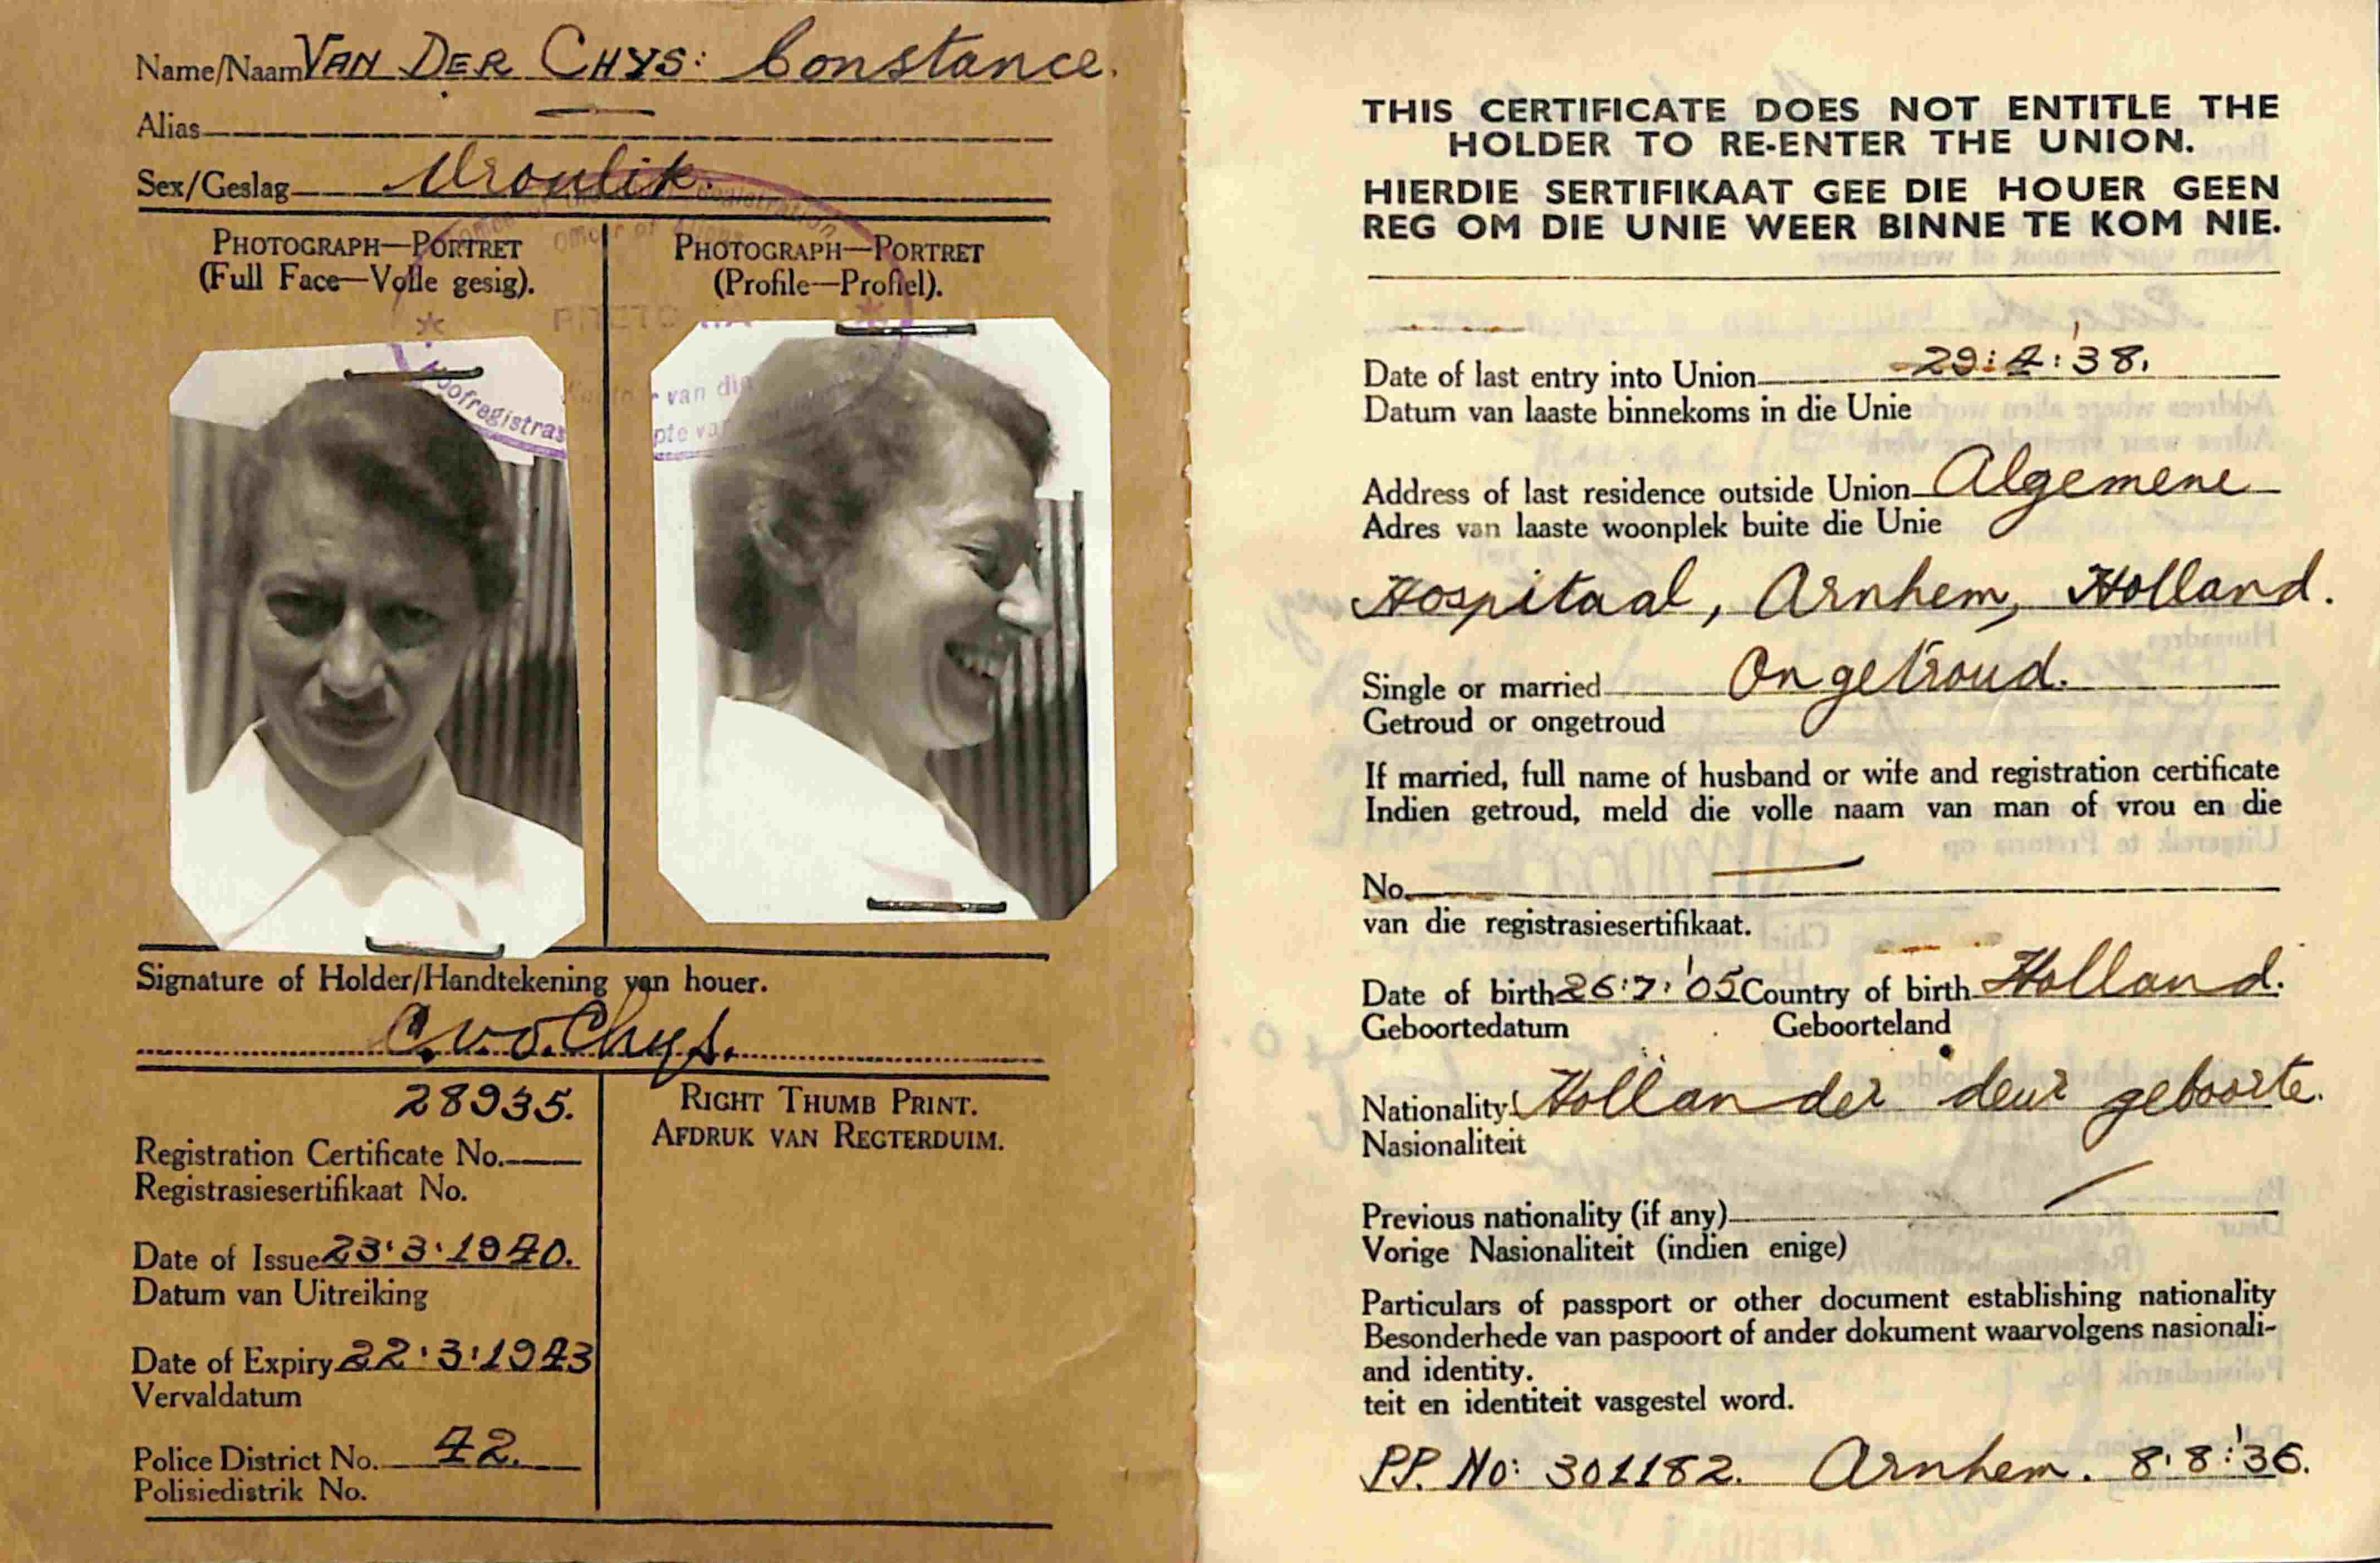 Name/Naam VAN DER CHYS: Constance.
Alias
Sex/Geslag Vroulik.
PHOTOGRAPH—PORTRET
(Full Face—Volle gesig).
PHOTOGRAPH—PORTRET
(Profile—Profiel).
Hoofregistras
r van die
pte va
Signature of Holder/Handtekening van houer.
C.v.d.Chys.
28935.
Registration Certificate No.
Registrasiesertifikaat No.
Date of Issue 23.3.1940.
Datum van Uitreiking
Date of Expiry 22.3.1943
Vervaldatum
Police District No. 42.
Polisiedistrik No.
RIGHT THUMB PRINT.
AFDRUK VAN REGTERDUIM.
THIS CERTIFICATE DOES NOT ENTITLE THE
HOLDER TO RE-ENTER THE UNION.
HIERDIE SERTIFIKAAT GEE DIE HOUER GEEN
REG OM DIE UNIE WEER BINNE TE KOM NIE.
Date of last entry into Union 29:4:'38.
Datum van laaste binnekoms in die Unie
Address of last residence outside Union Algemene
Adres van laaste woonplek buite die Unie
Hospitaal, Arnhem, Holland.
Single or married Ongetroud.
Getroud or ongetroud
If married, full name of husband or wife and registration certificate
Indien getroud, meld die volle naam van man of vrou en die
No.
van die registrasiesertifikaat.
Date of birth 26:7:'05 Country of birth Holland.
Geboortedatum Geboorteland
Nationality Hollander deur geboorte.
Nasionaliteit
Previous nationality (if any)
Vorige Nasionaliteit (indien enige)
Particulars of passport or other document establishing nationality
Besonderhede van paspoort of ander dokument waarvolgens nasionali-
and identity.
teit en identiteit vasgestel word.
P.P. No: 301182. Arnhem. 8.8:'36.